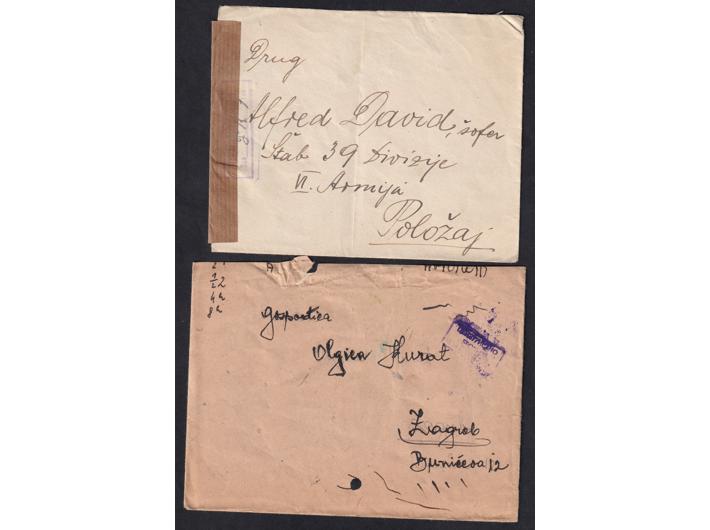 Drug
Alfred David, šofer
Štab 39 Divizije
VI. Armija
Položaj
2
1/2 2
4h
8h
Gospodica
Olgica Hurat
Zagreb
12